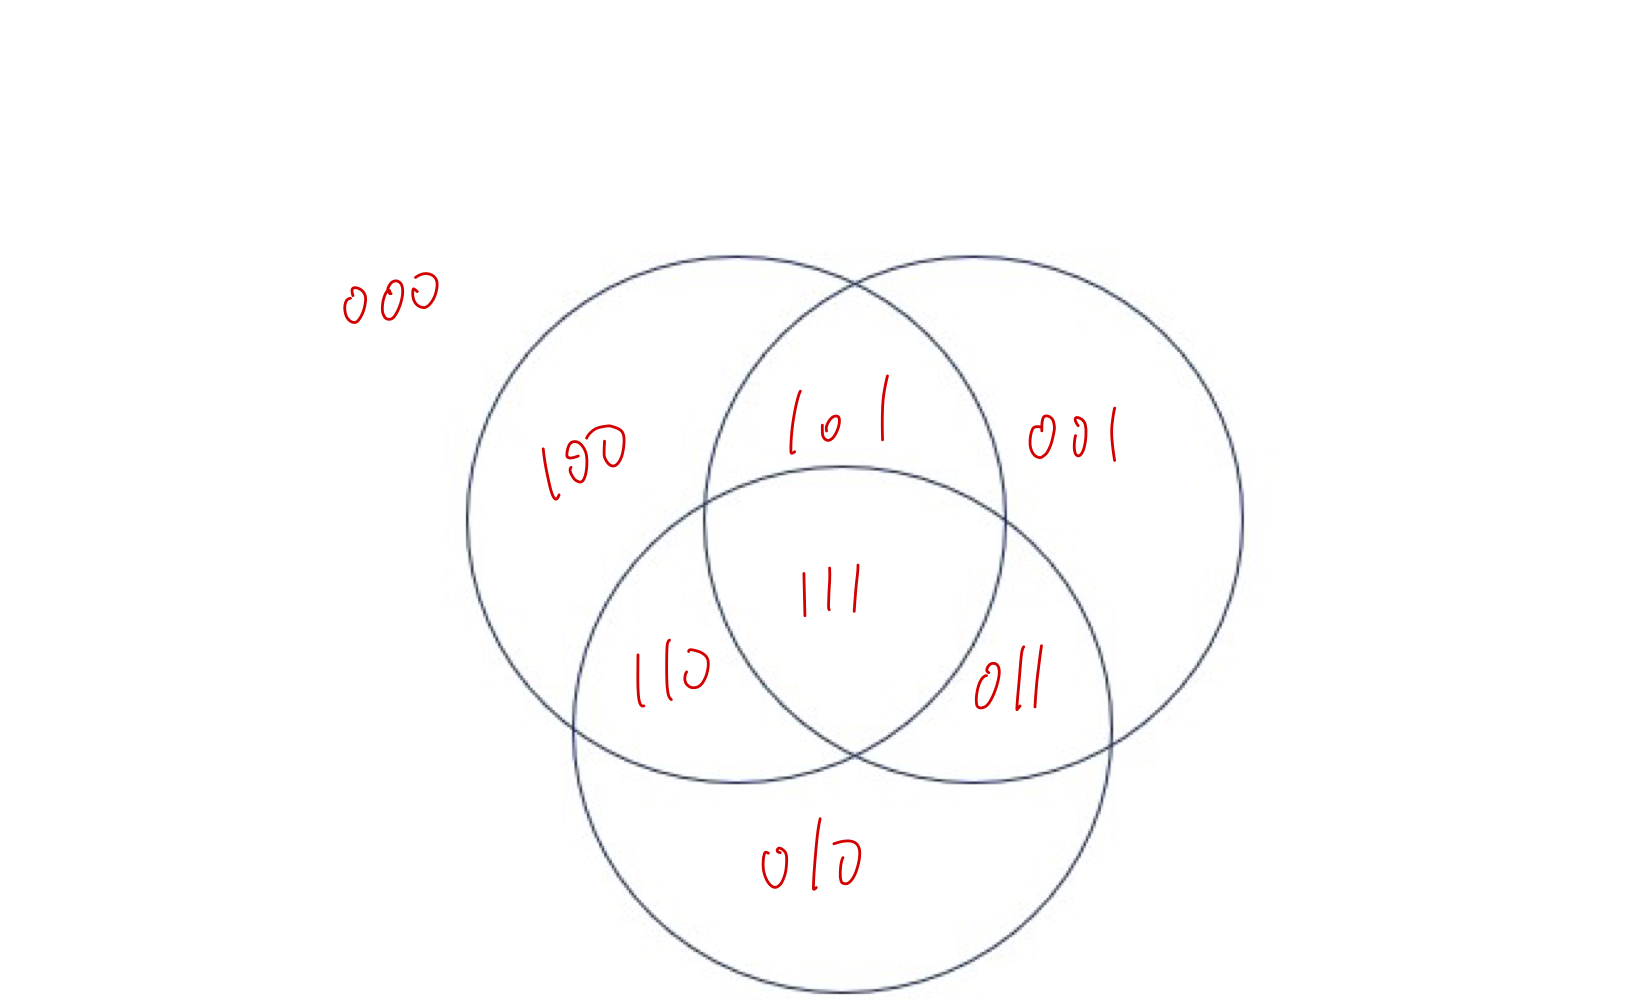 000
100
101
001
111
110
011
010